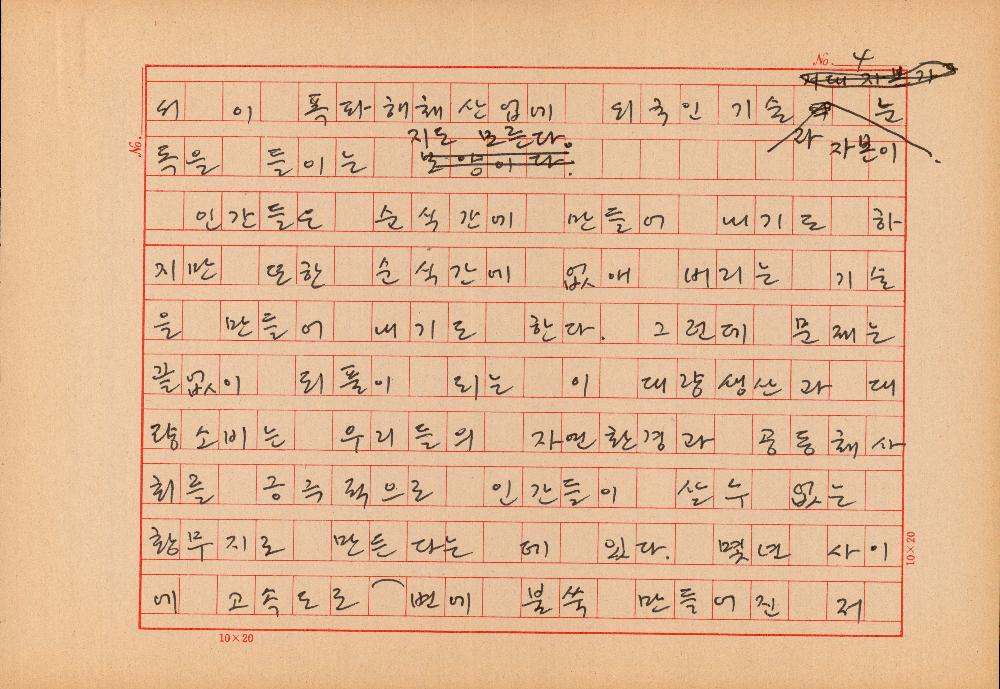 No. 4
거대 자본가
이 폭파해체산업에 외국인 기술 눈
과 자본이
No.
지도 모른다.
독을 들이는 모양이다.
인간들은 순식간에 만들어 내기로 하
지만 또한 순식간에 없애 버리는 기술
을 만들어 내기도 한다. 그런데 문제는
끝없이 되풀이 되는 이 대량생산과 대
량소비는 우리들의 자연환경과 공동체사
회를 궁극적으로 인간들이 살 수 없는
황무지로 만든다는 데 있다. 몇년 사이
에 고속도로 변에 불쑥 만들어진 저
10×20
10×20